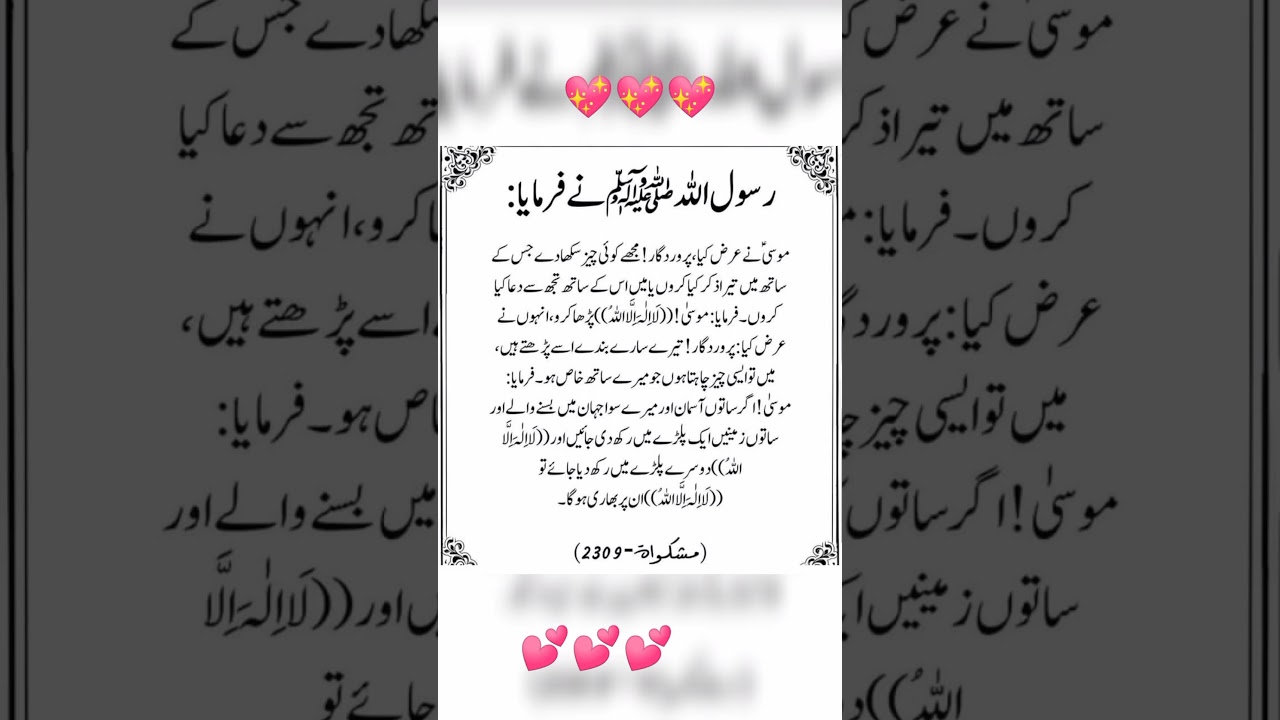 رسول اللہ ﷺ نے فرمایا:
موسیٰؑ نے عرض کیا، پروردگار! مجھے کوئی چیز سکھا دے جس کے
ساتھ میں تیرا ذکر کیا کروں یا میں اس کے ساتھ تجھ سے دعا کیا
کروں۔ فرمایا: موسیٰ! ((لَا اِلٰہَ اِلَّا اللّٰہُ)) پڑھا کرو، انہوں نے
عرض کیا: پروردگار! تیرے سارے بندے اسے پڑھتے ہیں،
میں تو ایسی چیز چاہتا ہوں جو میرے ساتھ خاص ہو۔ فرمایا:
موسیٰ! اگر ساتوں آسمان اور میرے سوا جہان میں بسنے والے اور
ساتوں زمینیں ایک پلڑے میں رکھ دی جائیں اور ((لَا اِلٰہَ اِلَّا
اللّٰہُ)) دوسرے پلڑے میں رکھ دیا جائے تو
((لَا اِلٰہَ اِلَّا اللّٰہُ)) ان پر بھاری ہو گا۔
(مشکواۃ-2309)